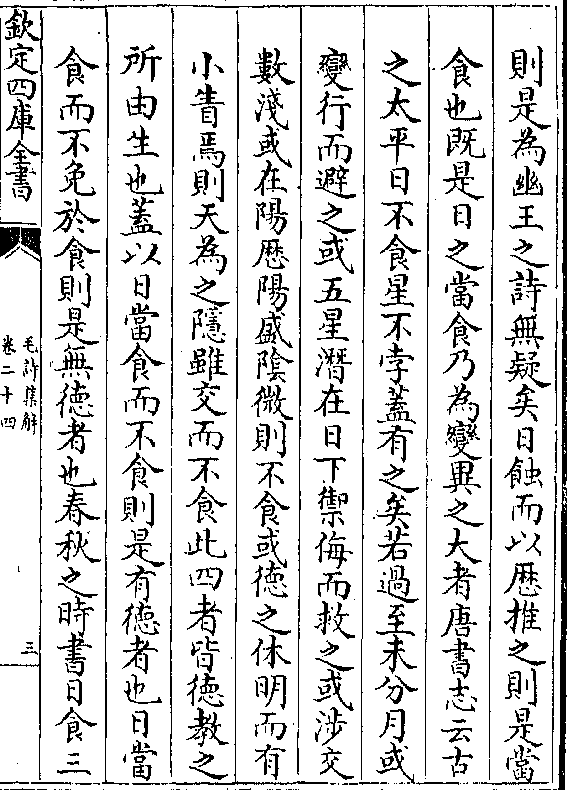 則是為幽王之詩無疑矣日蝕而以歴推之則是當
食也既是日之當食乃為變異之大者唐書志云古
之太平日不食星不孛蓋有之矣若過至未分月或
變行而避之或五星潛在日下禦侮而救之或涉交
數淺或在陽歴陽盛隂微則不食或徳之休明而有
小眚焉則天為之隱雖交而不食此四者皆徳教之
所由生也蓋以日當食而不食則是有徳者也日當
食而不免於食則是無徳者也春秋之時書日食三
欽定四庫全書
毛詩集解
卷二十四
三